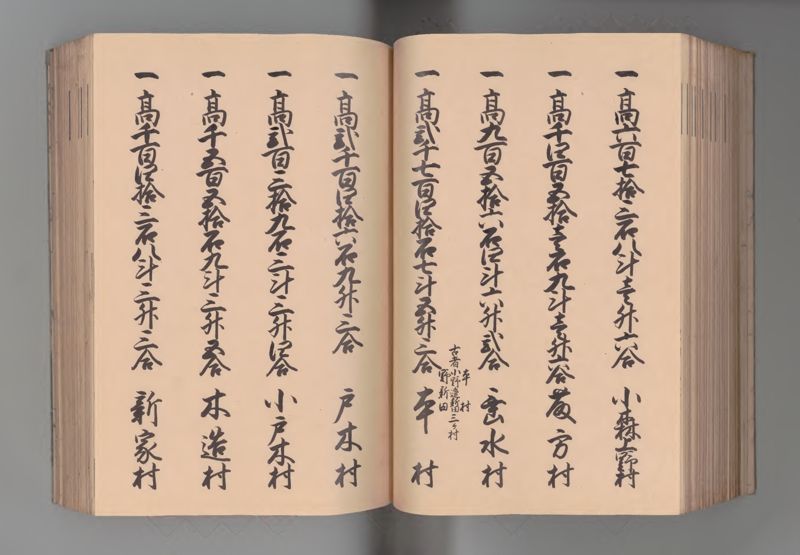 一 高六百七拾三石八斗壱升六合 小森上野村
一 高千四百五拾壱石九斗壱升六合 藤方村
一 高九百五拾六石四斗六升弐合 雲出村
一 高弐千七百四拾石七斗五升三合 本村
本村
古者小野辺新田三ヶ村
野新田
一 高弐千百四拾六石九升三合 戸木村
一 高弐百三拾九石三斗三升四合 小戸木村
一 高千五百五拾石九斗三升五合 木造村
一 高千百四拾三石八斗三升三合 新家村